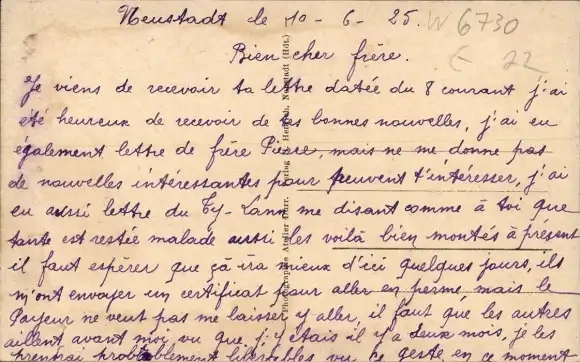 Neustadt le 10 - 6 - 25.
W 6730
E 22
Bien cher frère.
Je viens de recevoir ta lettre datée du 8 courant j'ai
été heureux de recevoir de tes bonnes nouvelles, j'ai eu
également lettre de frère Pierre, mais ne me donne pas
de nouvelles intéressantes pour peuvent t'intéresser, j'ai
eu aussi lettre du Ty-Lann me disant comme à toi que
tante est restée malade aussi les voilà bien montés à présent
il faut espérer que çà ira mieux d'ici quelques jours, ils
m'ont envoyer un certificat pour aller en perme mais le
Payeur ne veut pas me laisser y aller, il faut que les autres
aillent avant moi vu que j'y étais il y a deux mois, je les
probablement vu ce geste en ce moment
Photographie Atelier Dürr. Verlag Neustadt (Hdt.)